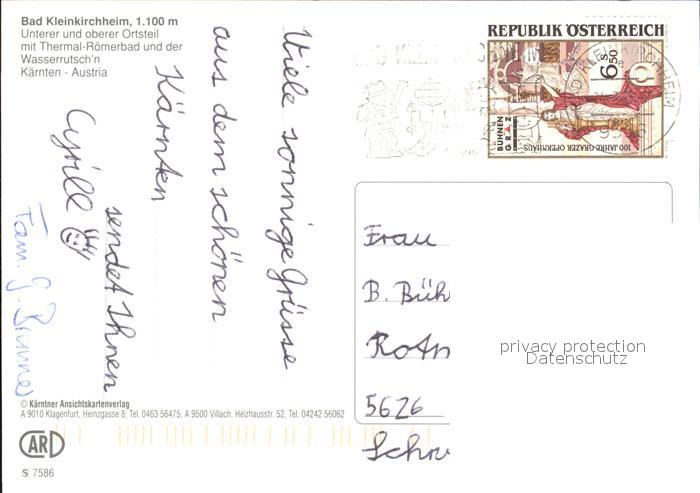 Bad Kleinkirchheim, 1.100 m
Unterer und oberer Ortsteil
mit Thermal-Römerbad und der
Wasserrutsch'n
Kärnten - Austria
Viele sonnige Grüsse
aus dem schönen
Kärnten
sendet Ihnen
Cyrill
Fam. G. Brunner
REPUBLIK ÖSTERREICH
S 6.50
BÜHNEN
GRAZ
100 JAHRE GRAZER OPERNHAUS
Frau
B. Büh
Roth
5626
privacy protection
Datenschutz
© Kärntner Ansichtskartenverlag
A 9010 Klagenfurt, Heinzgasse 8; Tel. 0463 56475, A 9500 Villach, Heizhausstr. 52, Tel. 04242 56062
CARD
S 7586